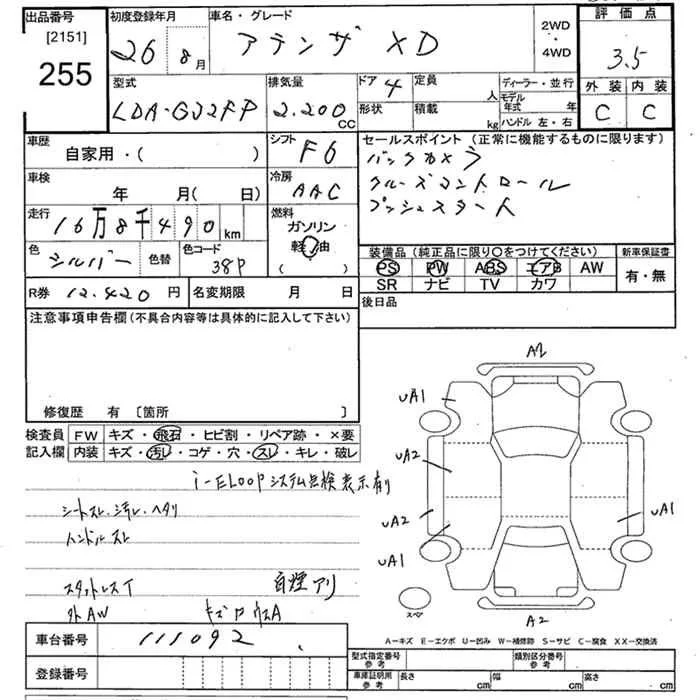 出品番号
[2151]
255
初度登録年月
26 8月
車名・グレード
アテンザ XD
2WD
・
4WD
評価点
3.5
外装 内装
C C
型式
LDA-GJ2FP
排気量
2.200
CC
ドア 4
形状
定員
人
積載
kg
ディーラー・並行
モデル年式 年
ハンドル 左・右
車歴
自家用・( )
シフト
F6
セールスポイント (正常に機能するものに限ります)
バックカメラ
クルーズコントロール
プッシュスタート
車検
年 月( 日)
冷房
AAC
走行
16万8千490km
燃料
ガソリン
軽油
( )
色
シルバー
色替
色コード
38P
装備品 (純正品に限り○をつけてください)
PS PW ABS エアB AW
SR ナビ TV カワ
新車保証書
有・無
R券 12.420 円
名変期限 月 日
後日品
注意事項申告欄 (不具合内容等は具体的に記入して下さい)
修復歴 有 〔箇所 〕
検査員
記入欄
FW キズ・飛石・ヒビ割・リペア跡・×要
内装 キズ・汚レ・コゲ・穴・スレ・キレ・破レ
i-ELOOPシステム点検表示有
シートスレ・汚レ・ヘタリ
ハンドルスレ
スタットレスT
白煙アリ
外AW
A2
UA1
UA2
UA2
UA1
UA1
スペア
A2
A-キズ E-エクボ U-凹み W-補修跡 S-サビ C-腐食 XX-交換済
車台番号 111092
登録番号
型式指定番号
参考
類別区分番号
参考
車庫証明用
参考
長さ cm 幅 cm 高さ cm